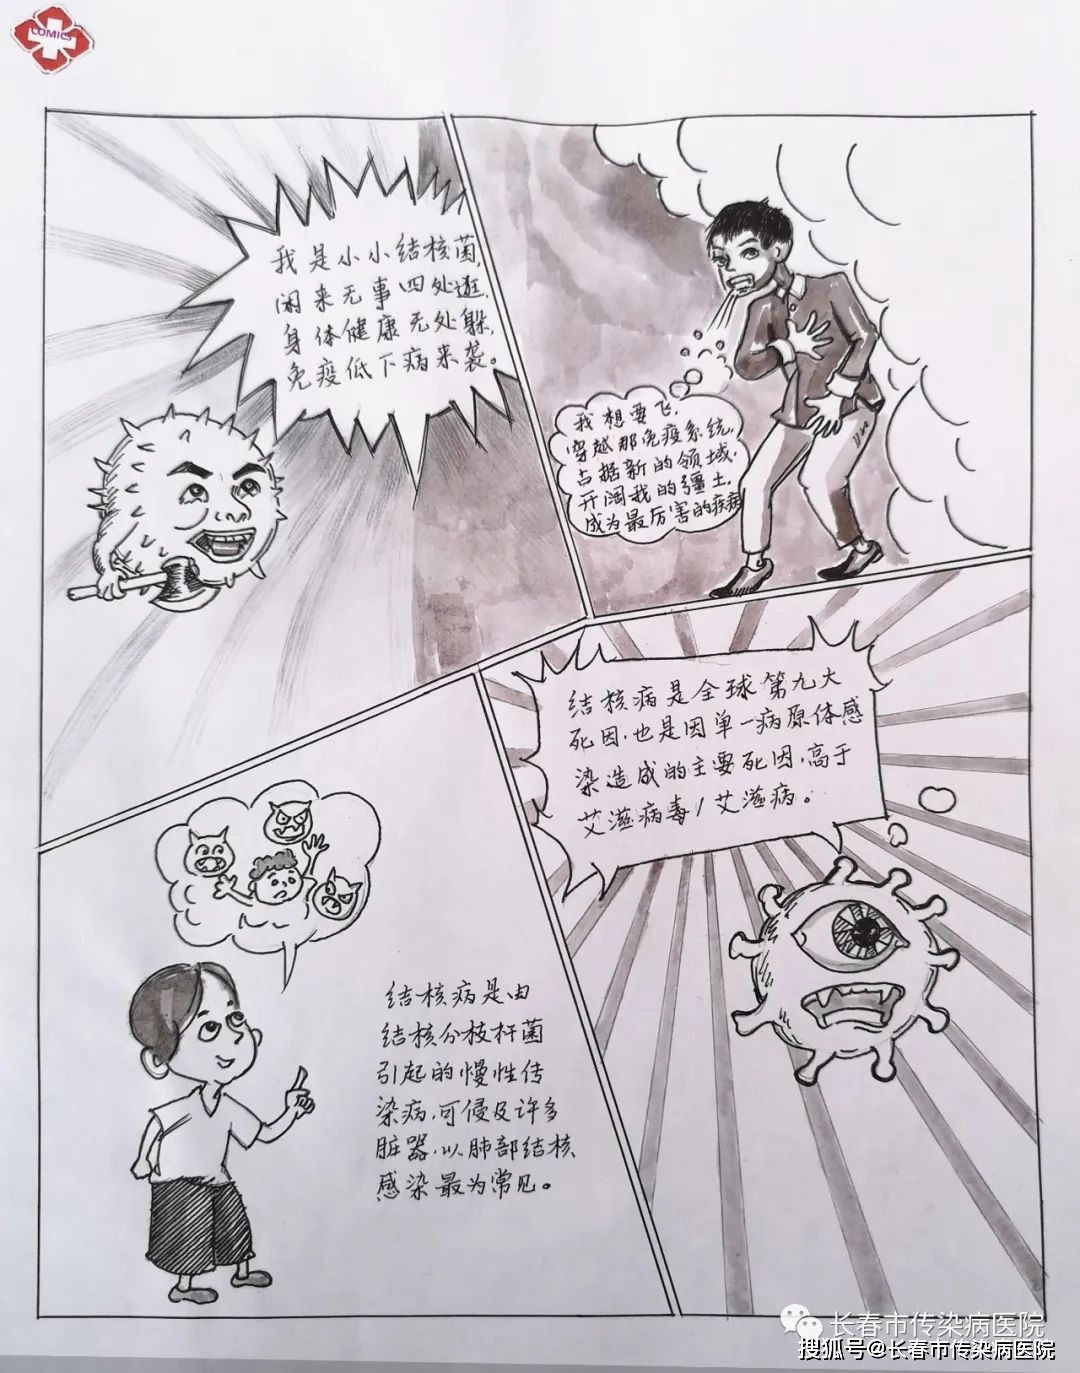 COMICS
我是小小结核菌,
闲来无事四处逛,
身体健康无处躲,
免疫低下病来袭。
我想要飞,
穿越那免疫系统,
占据新的领域,
开阔我的疆土,
成为最厉害的疾病
结核病是全球第九大
死因,也是因单一病原体感
染造成的主要死因,高于
艾滋病毒/艾滋病。
结核病是由
结核分枝杆菌
引起的慢性传
染病,可侵及许多
脏器,以肺部结核
感染最为常见。
长春市传染病医院
搜狐号@长春市传染病医院